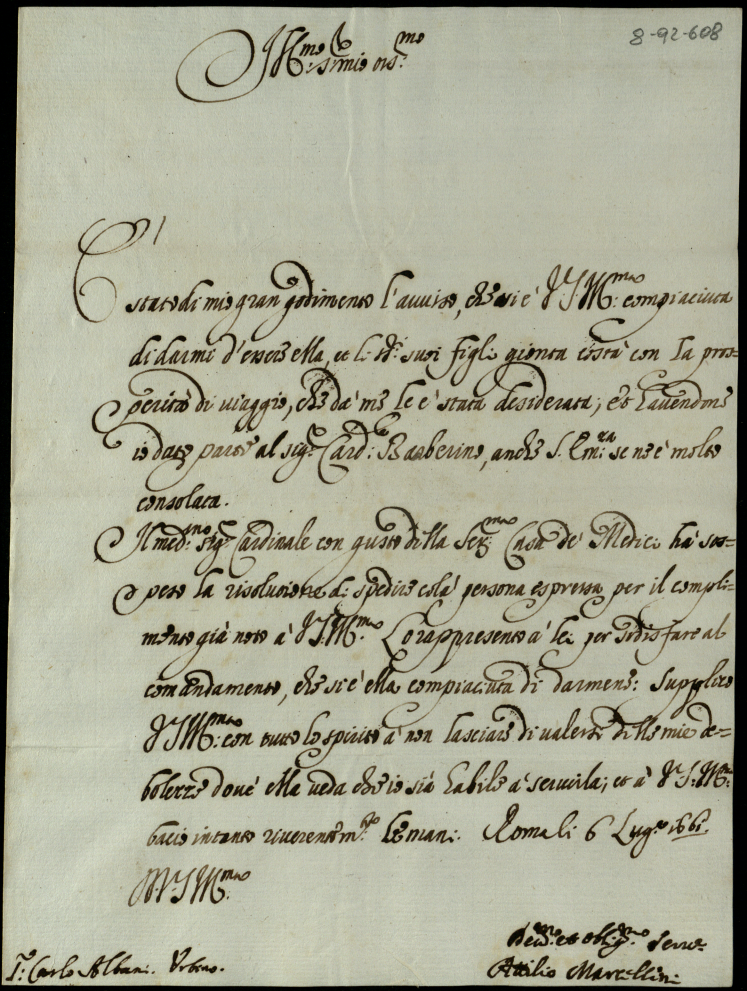 8-92-608
Ill.mo Sig.r mio oss.mo
È
stato di mio gran godimento l'auuiso, che si è V.S. Ill.ma compiaciuta
di darmi d'essere ella, et li SS.ri suoi figli gionta costà con la pros=
perità di uiaggio, che da me le è stata desiderata; et hauendone
io dato parte al sig.r Card.le Barberino, anche S. Em.za se ne è molto
consolata.
Il med.mo sig.r Cardinale con gusto della Ser.ma Casa de Medici hà sos=
peso la risolutione di spedire colà persona espressa per il compli=
mento già noto à V.S. Ill.ma Lo rappresento à lei per sodisfare al
comandamento, che si è ella compiaciuta di darmene: supplico
V.S. Ill.ma con tutto lo spirito à non lasciare di ualersi delle mie de=
bolezze doue ella ueda che io sia habile à seruirla; et à V.S. Ill.ma
bacio intanto riuerentem.te le mani. Roma li 6 Lug.o 1661.
Di V.S. Ill.ma
Deu.mo et oblig.mo seru.re
S.r Carlo Albani. Urbino.
Attilio Marcellini